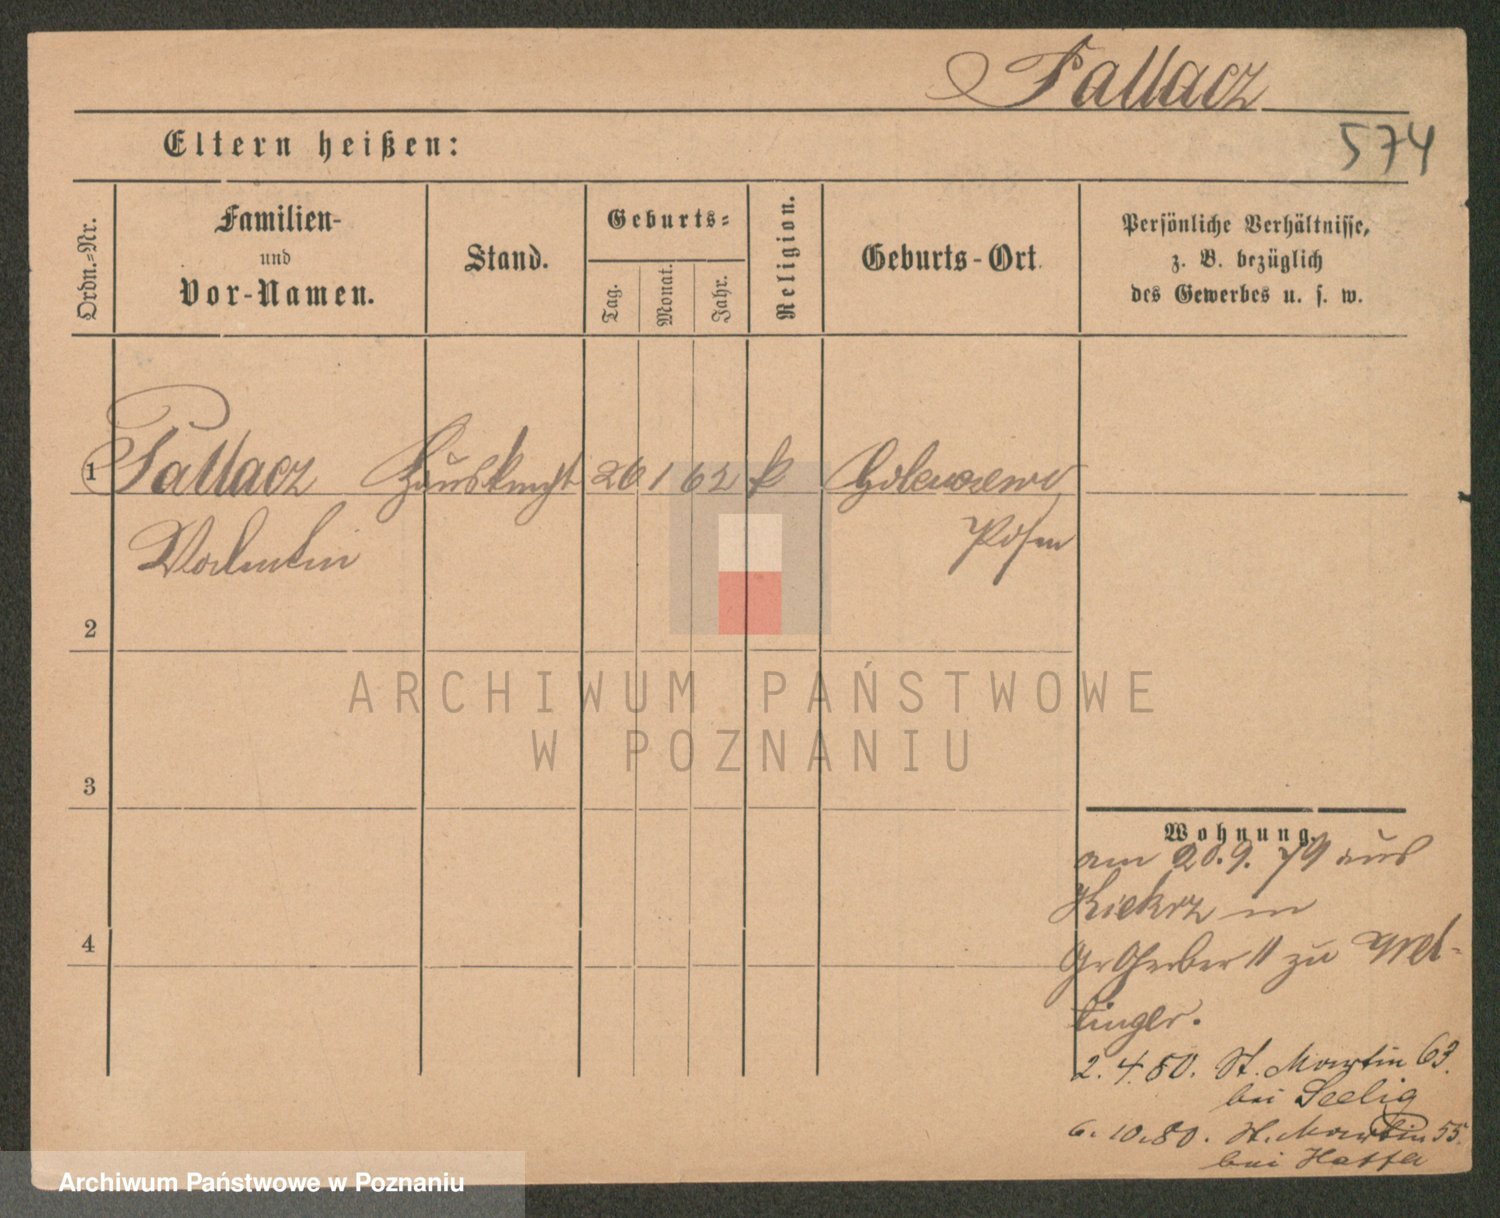 Pallacz
574
Eltern heißen:
Ordn.-Nr.
Familien-
und
Vor-Namen.
Stand.
Geburts-
Tag.
Monat.
Jahr.
Religion.
Geburts-Ort.
Persönliche Verhältnisse,
z. B. bezüglich
des Gewerbes u. s. w.
1 Pallacz Hausknecht 26 1 62 k
Valentin Posen
2
3
4
Wohnung.
am 20.9.79 aus
Kiekrz in
Gr Gerber 11 zu
2.4.80. St. Martin 63.
bei Seelig
6.10.80. St. Martin 55.
bei
ARCHIWUM PAŃSTWOWE
W POZNANIU
Archiwum Państwowe w Poznaniu